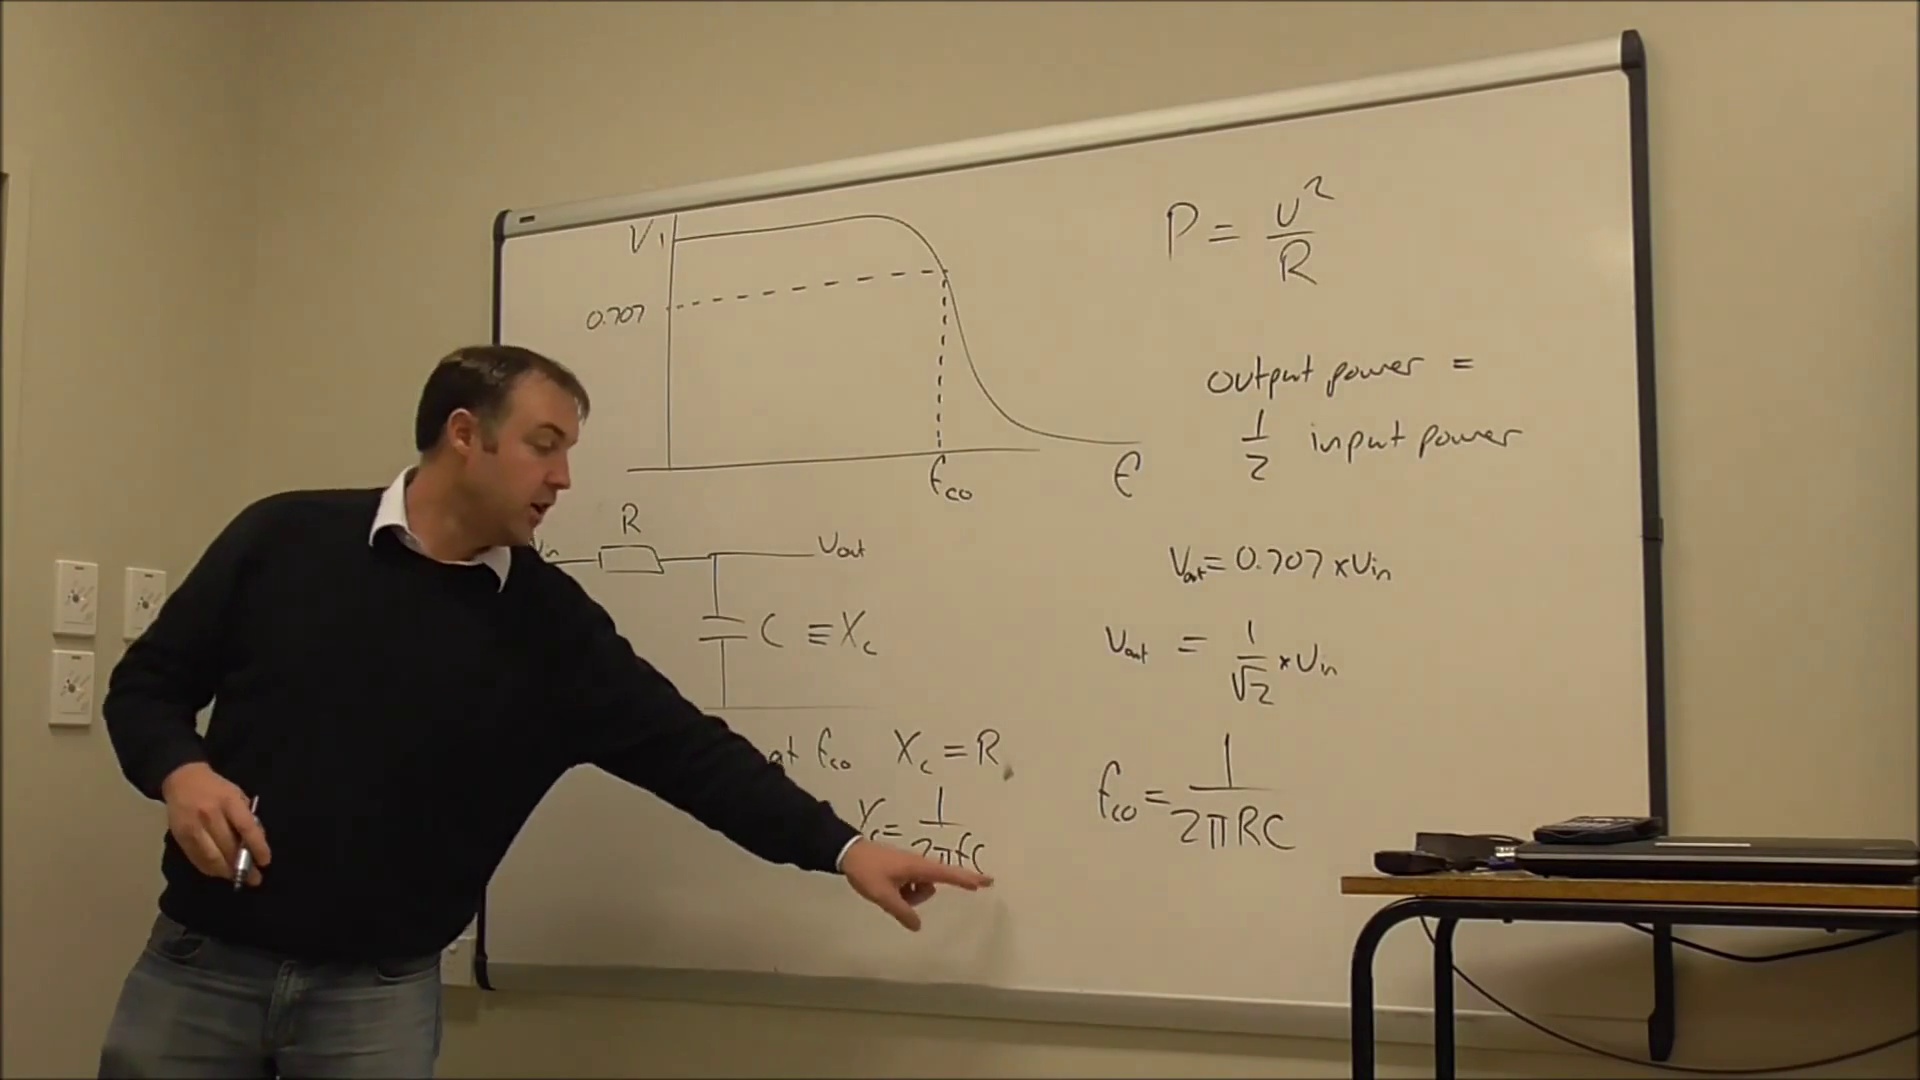 V 1
0.707
fco
f
R
Vin
Vout
C ≡ Xc
at fco Xc = R
Xc = 1/2πfC
P = V²/R
output power =
1/2 input power
Vout = 0.707 × Vin
Vout = 1/√2 × Vin
fco = 1/2πRC